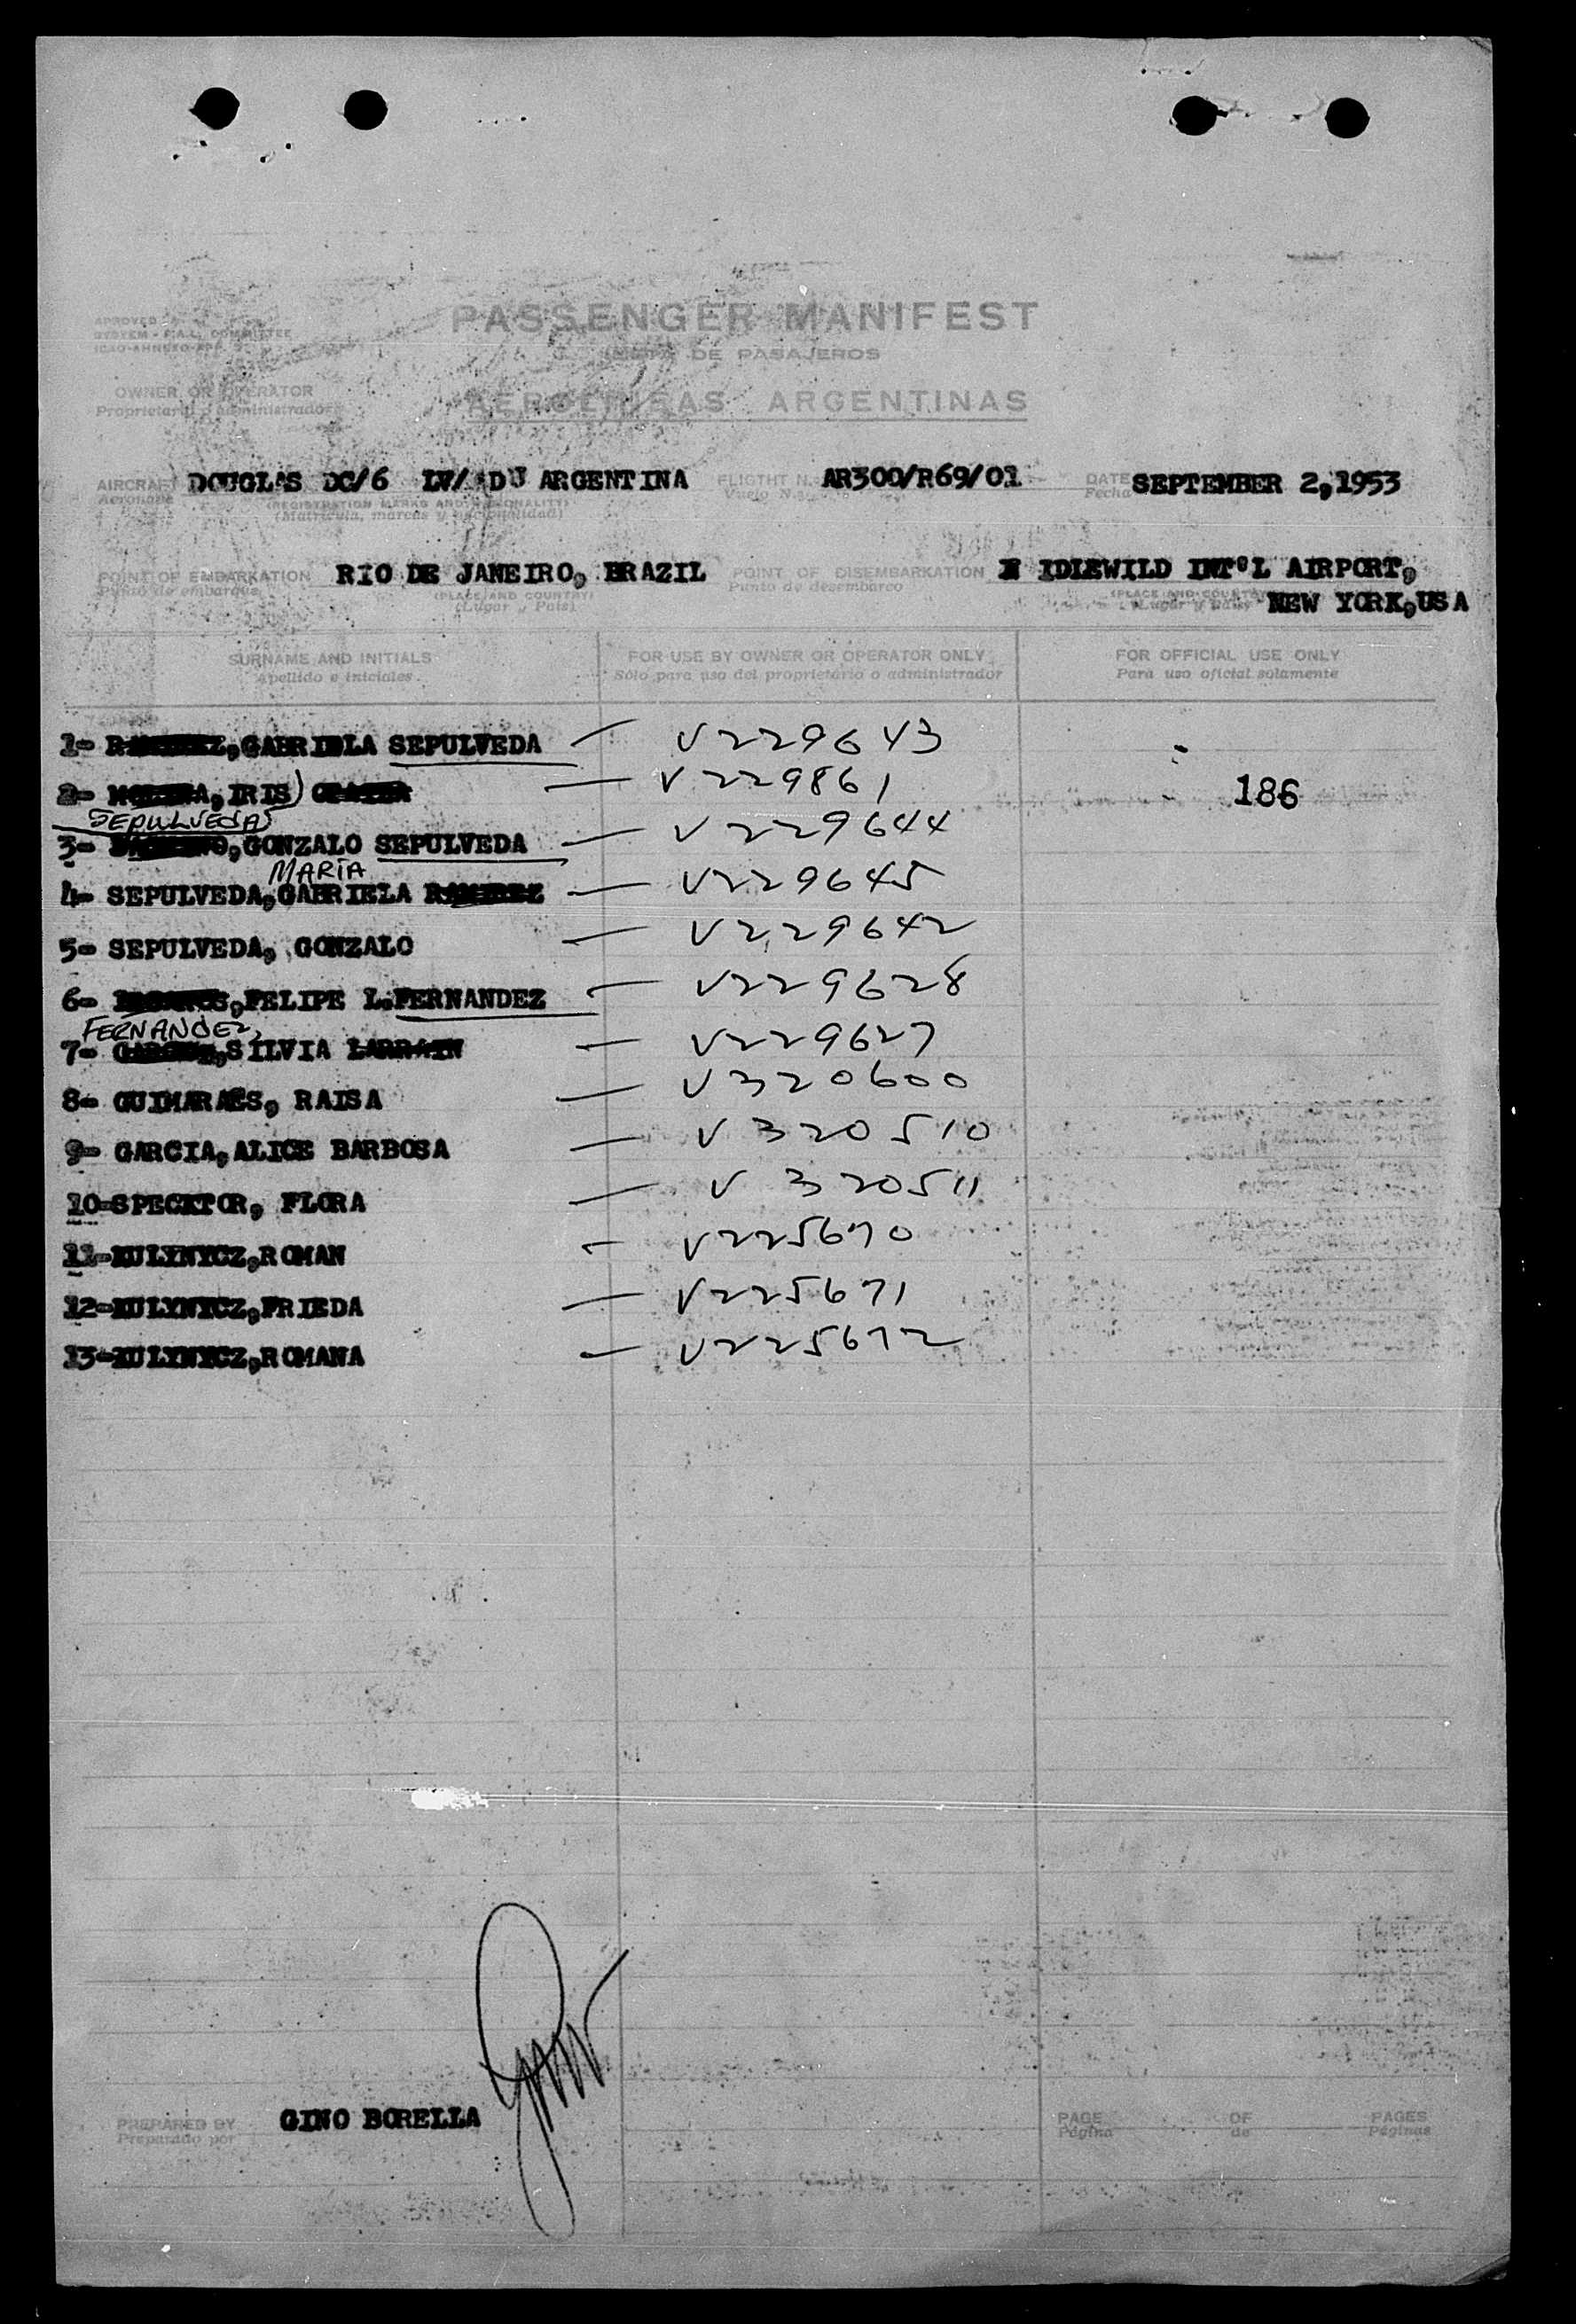 PASSENGER MANIFEST
LISTA DE PASAJEROS
APROVED
SYSTEM - F.A.L. COMMITTEE
OWNER OR OPERATOR
Proprietario o administrador
AEROLINEAS ARGENTINAS
AIRCRAFT DOUGLAS DC/6 LV/ADU ARGENTINA FLIGTHT N. AR300/R69/01 DATE SEPTEMBER 2,1953
Aeronave Vuelo N. Fecha
(REGISTRATION MARKS AND NATIONALITY)
(Matrícula, marcas y nacionalidad)
POINT OF EMBARKATION RIO DE JANEIRO, BRAZIL POINT OF DISEMBARKATION IDLEWILD INT'L AIRPORT,
Punto de embarque (PLACE AND COUNTRY) Punto de desembarco (PLACE AND COUNTRY)
(Lugar y País) (Lugar y País) NEW YORK,USA
SURNAME AND INITIALS FOR USE BY OWNER OR OPERATOR ONLY FOR OFFICIAL USE ONLY
Apellido e iniciales Sólo para uso del proprietario o administrador Para uso oficial solamente
1- GABRIELA SEPULVEDA — V229643
2- IRIS) — V229861 186
SEPULVEDA
3- GONZALO SEPULVEDA — V229644
MARIA
4- SEPULVEDA,GABRIELA RAMIREZ — V229645
5- SEPULVEDA, GONZALO — V229642
6- FELIPE L.FERNANDEZ — V229628
FERNANDEZ,
7- SILVIA LARRAIN — V229627
8- GUIMARAES, RAISA — V320600
9- GARCIA,ALICE BARBOSA — V320510
10-SPECKTOR, FLORA — V320511
11-KULYNYCZ,ROMAN — V225670
12-KULYNYCZ,FRIEDA — V225671
13-KULYNYCZ,ROMANA — V225672
PREPARED BY GINO BORELLA PAGE OF PAGES
Preparado por Página de Páginas